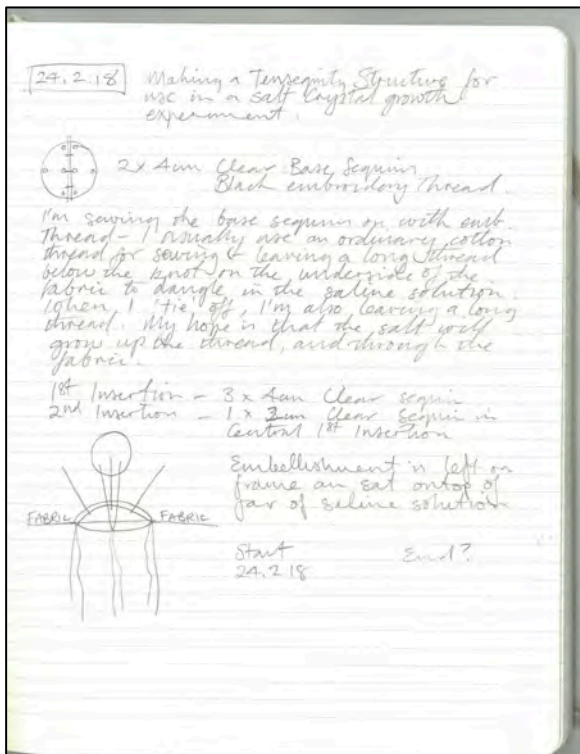 24.2.18 Making a Tensegrity Structure for
use in a Salt Crystal growth
experiment.
2 x 4cm Clear Base Sequins
Black embroidery Thread.
I'm sewing the base sequins on with emb.
Thread - I usually use an ordinary cotton
thread for sewing & leaving a long thread
below the knot on the underside of the
fabric to dangle in the saline solution.
When I 'tie' off, I'm also leaving a long
thread. My hope is that the salt will
grow up the thread, and through the
fabric.
1st Insertion - 3 x 4cm Clear sequin
2nd Insertion - 1 x 3cm Clear Sequin in
Central 1st Insertion
Embellishment is left on
frame an sat ontop of
jar of saline solution
FABRIC FABRIC
Start End?
24.2.18